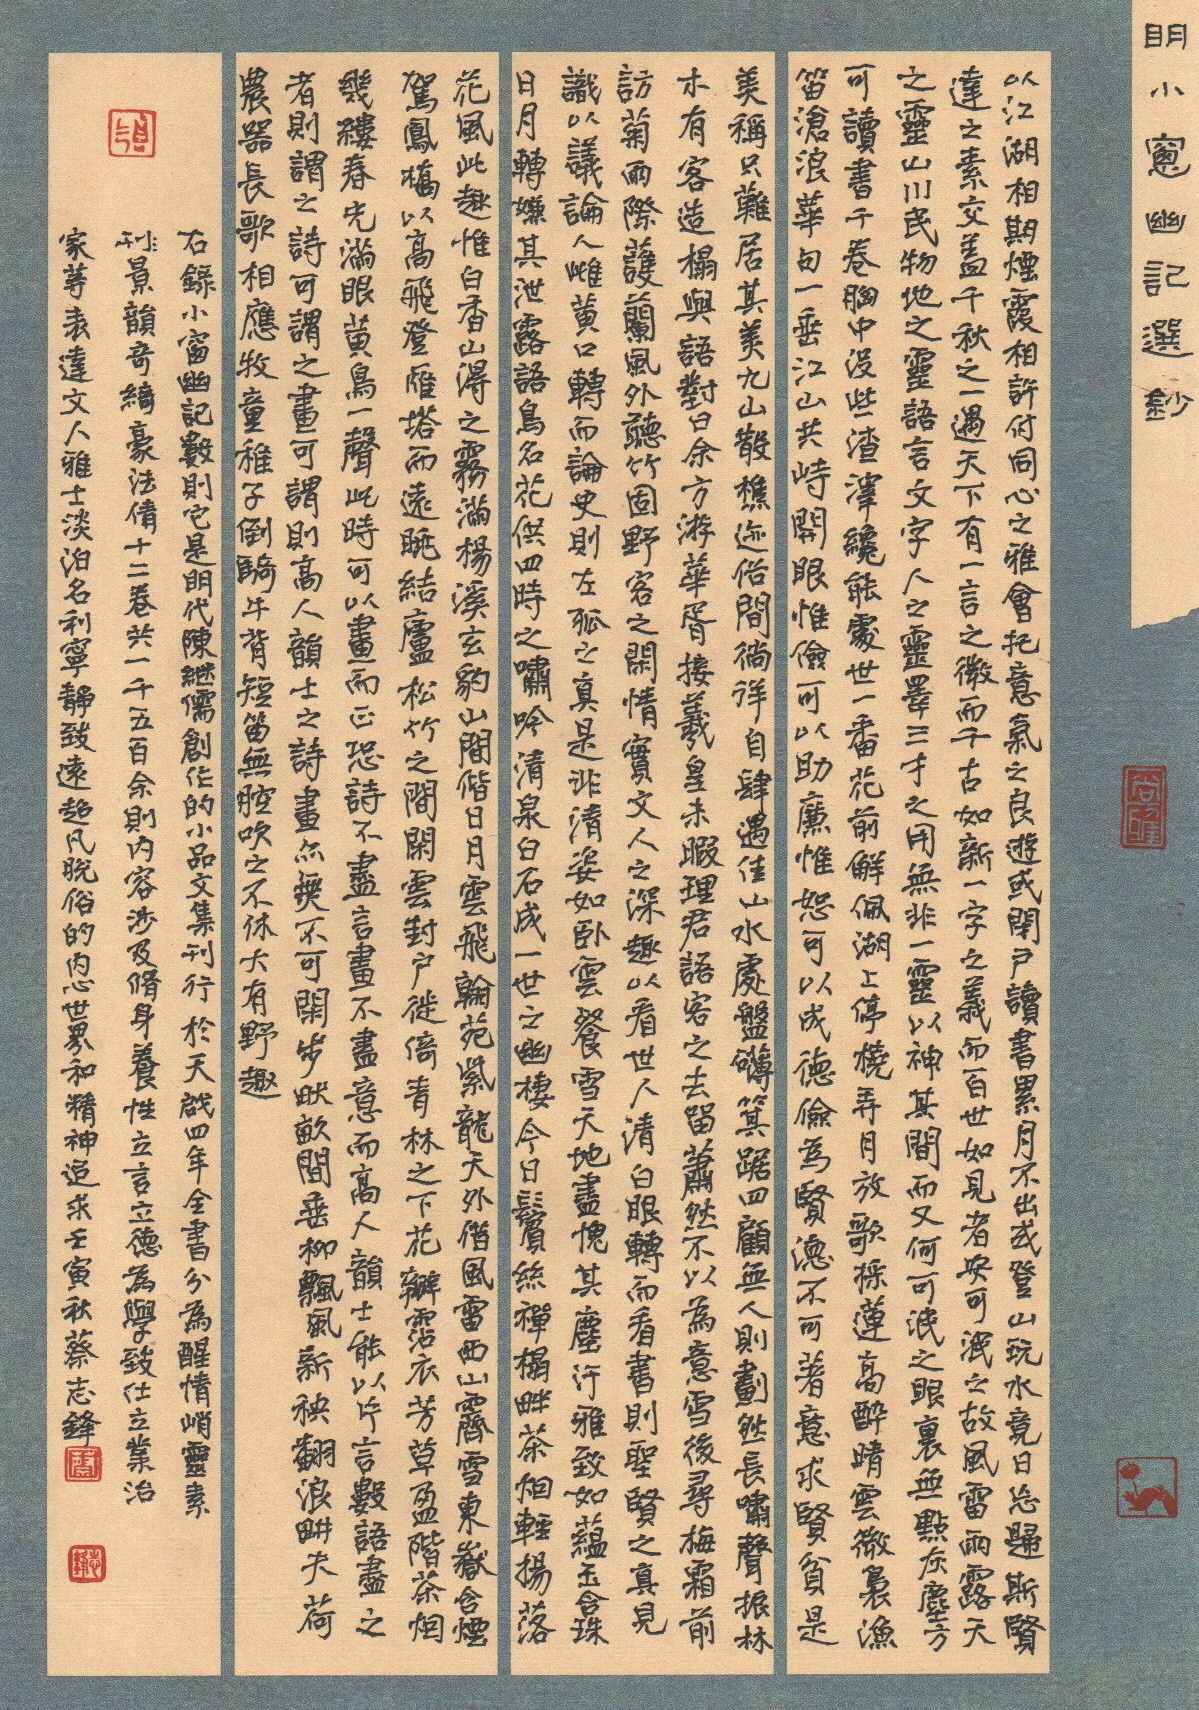 明小窻幽記選鈔
以江湖相期煙霞相許付同心之雅會托意氣之良遊或閉戸讀書累月不出或登山玩水竟日忘歸斯賢
達之素交蓋千秋之一遇天下有一言之微而千古如新一字之義而百世如見者安可泯之故風雷雨露天
之靈山川民物地之靈語言文字人之靈睪三才之用無非一靈以神其間而又何可泯之眼裏無點灰塵方
可讀書千卷胸中没些渣滓纔能處世一番花前解佩湖上停橈弄月放歌採蓮高醉晴雲微裊漁
笛滄浪華句一垂江山共峙開眼惟儉可以助廉惟恕可以成德儉為賢德不可著意求賢貧是
美稱只難居其美九山散樵迹俗間徜徉自肆遇佳山水處盤礴箕踞四顧無人則劃然長嘯聲振林
木有客造榻與語對曰余方游華胥接羲皇未暇理君語客之去留蕭然不以為意雪後尋梅霜前
訪菊雨際護蘭風外聽竹固野客之閑情實文人之深趣以看世人清白眼轉而看書則聖賢之真見
識以議論人雌黄口轉而論史則左狐之真是非清姿如卧雲餐雪天地盡愧其塵汙雅致如蘊玉含珠
日月轉嫌其泄露語鳥名花供四時之嘯吟清泉白石成一世之幽棲今日鬢絲禪榻畔茶烟輕揚落
花風此趣惟白香山得之霧滿楊溪玄豹山間偕日月雲飛翰苑紫龍天外借風雷西山霽雪東嶽含煙
駕鳳橋以高飛登雁塔而遠眺結廬松竹之間閑雲封户徙倚青林之下花瓣霑衣芳草盈階茶烟
幾縷春光滿眼黄鳥一聲此時可以畫而正恐詩不盡言畫不盡意而高人韻士能以片言數語盡之
者則謂之詩可謂之畫可謂則高人韻士之詩畫亦無不可閑步畎畝間垂柳飄風新秧翻浪畊夫荷
農器長歌相應牧童稚子倒騎牛背短笛無腔吹之不休大有野趣
右錄小窗幽記數則它是明代陳继儒創作的小品文集刊行於天啟四年全書分為醒情峭靈素
景韻奇綺豪法倩十二卷共一千五百余則内容涉及脩身養性立言立德為學致仕立業治
家等表達文人雅士淡泊名利寧静致遠超凡脱俗的内心世界和精神追求壬寅秋蔡志鋒